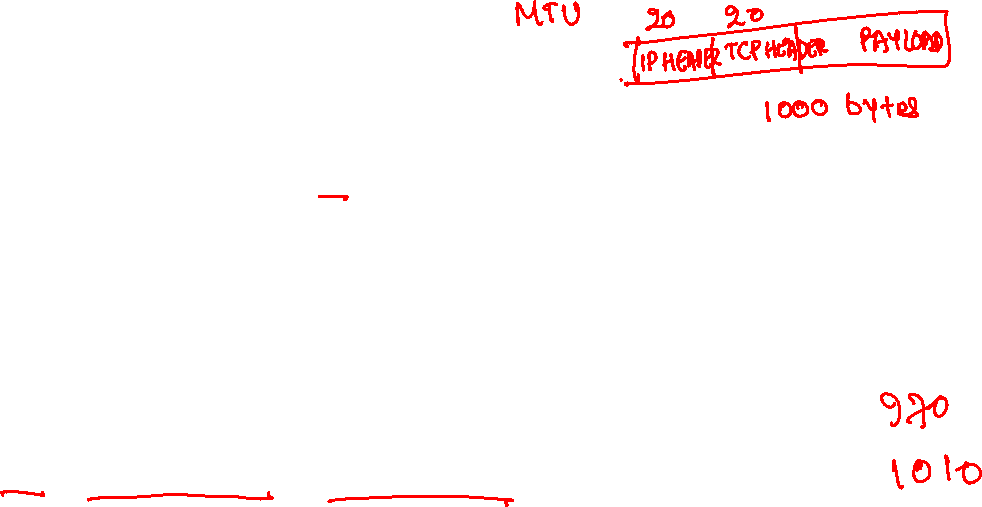 MTU 20 20
IP HEADER TCP HEADER PAYLOAD
1000 bytes
970
1010